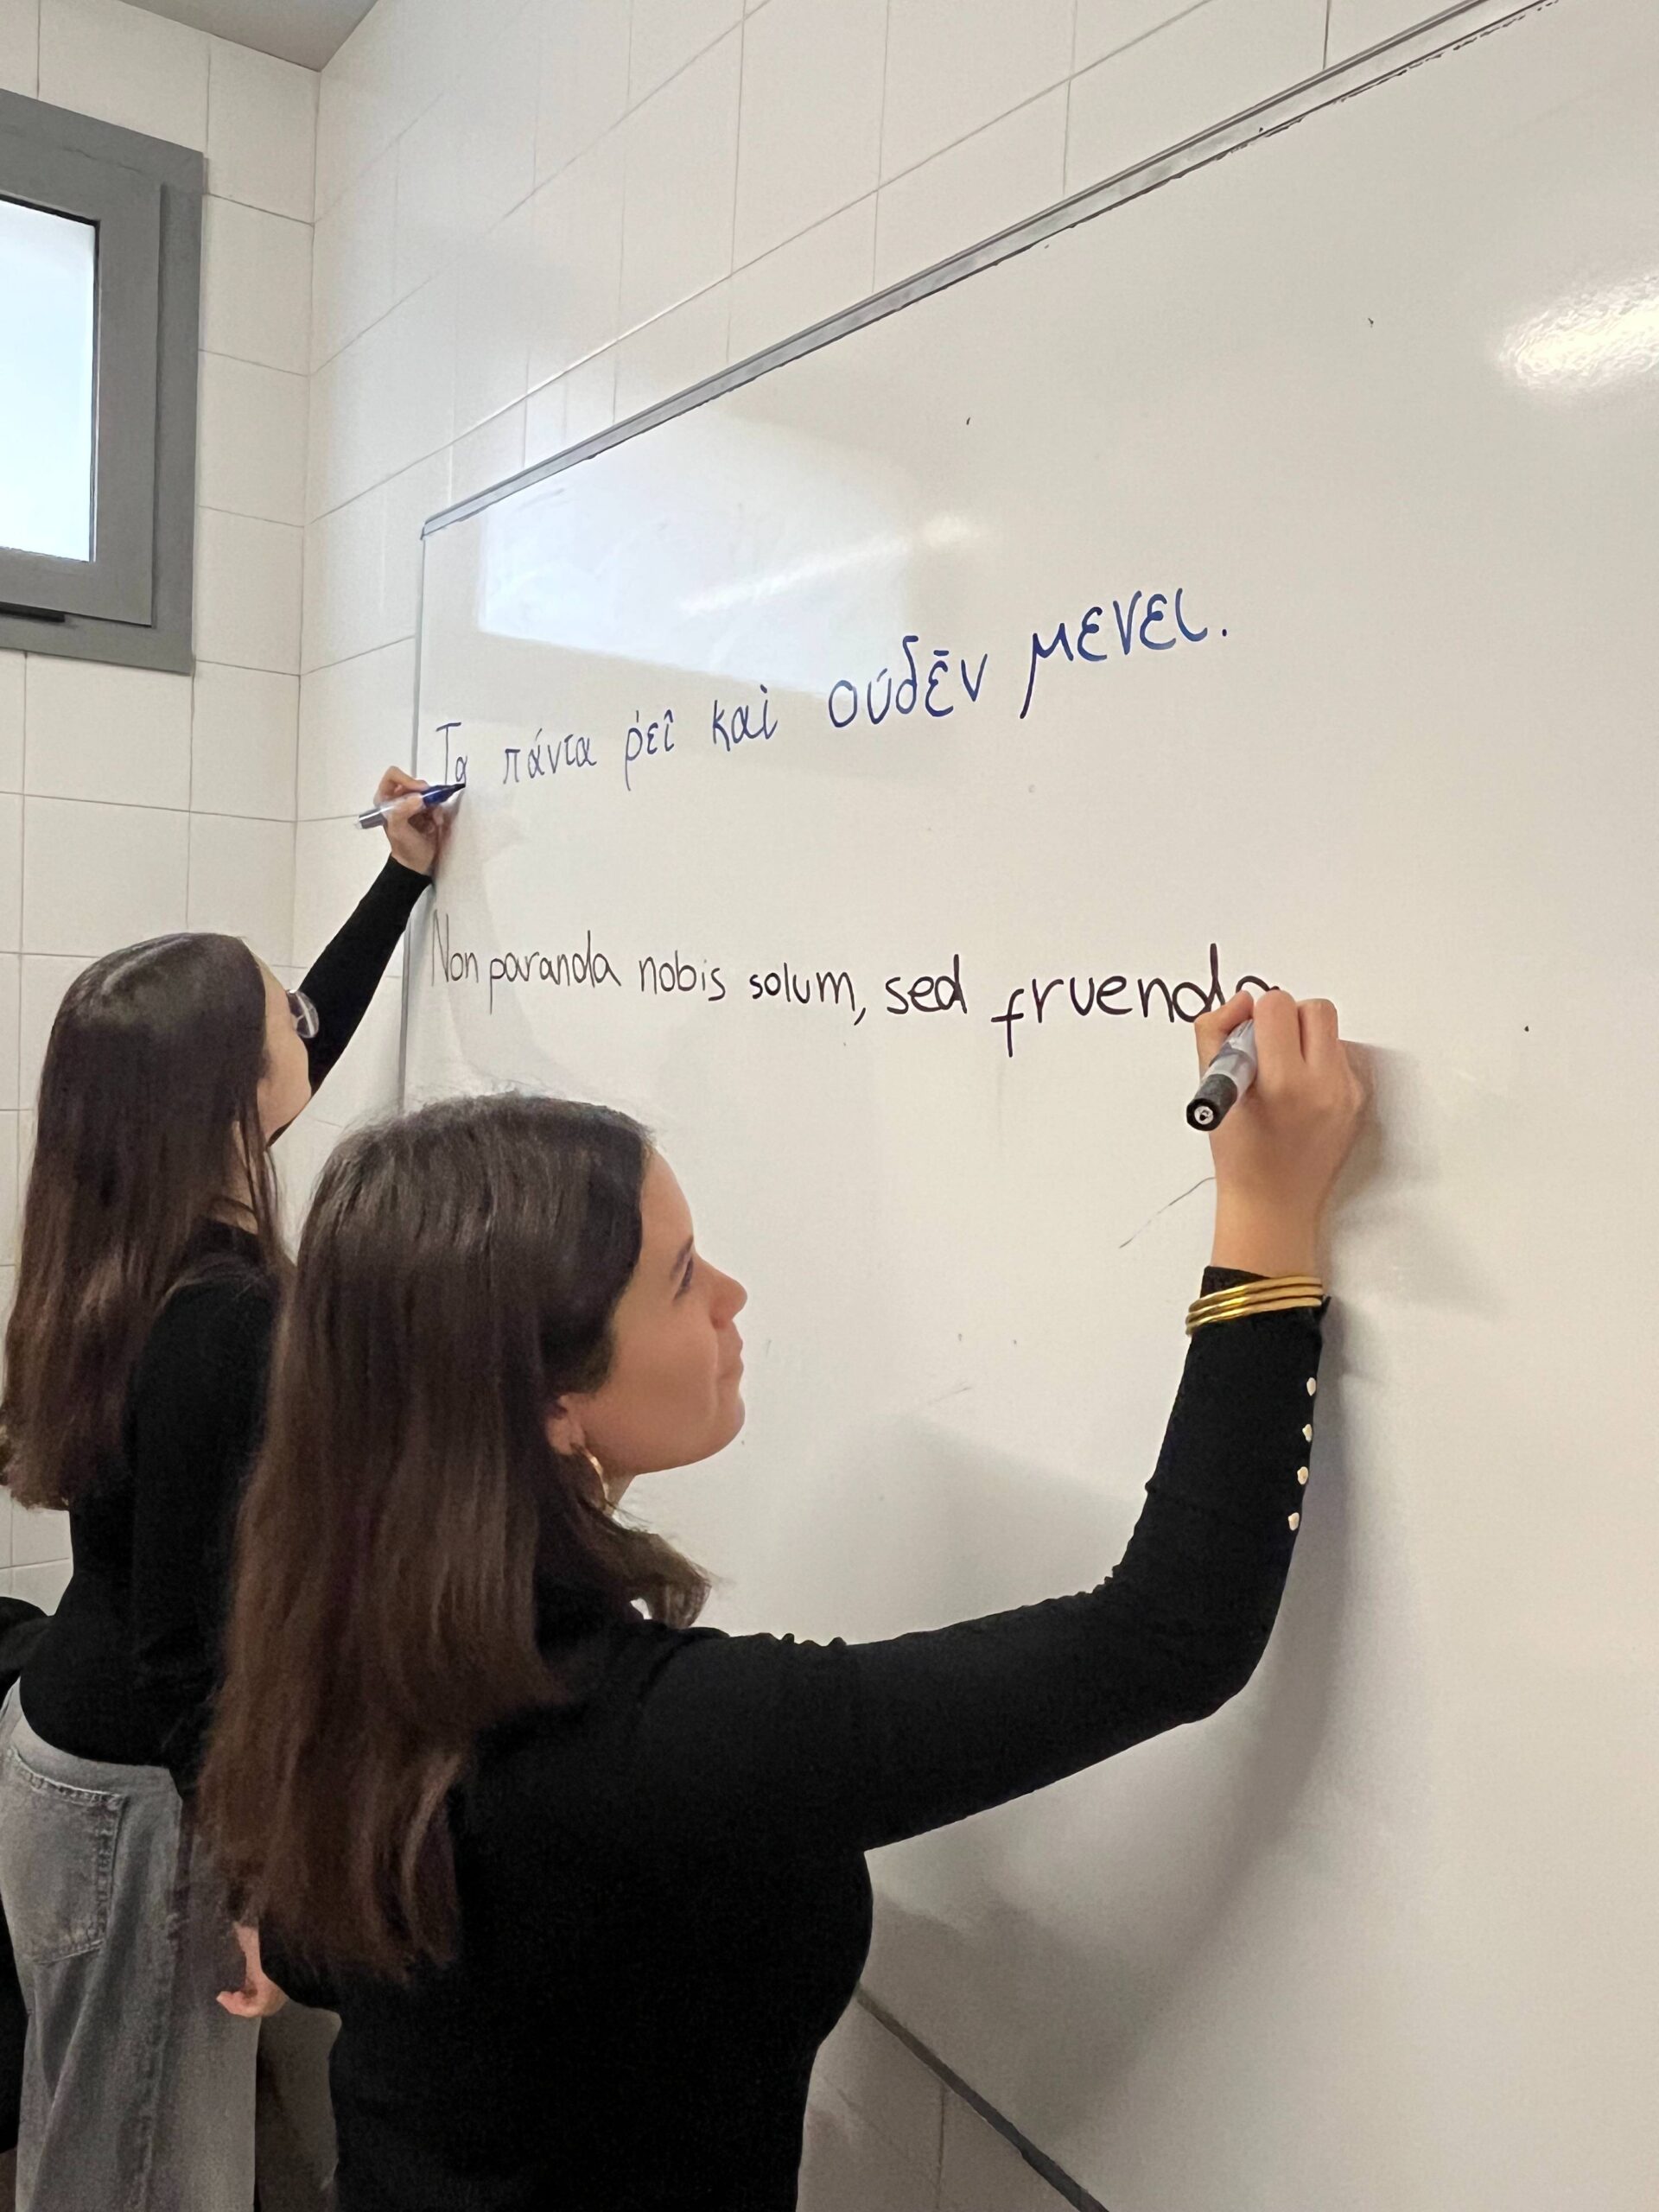 Τα πάντα ῥεῖ καὶ οὐδēν μενει.
Non paranda nobis solum, sed fruenda